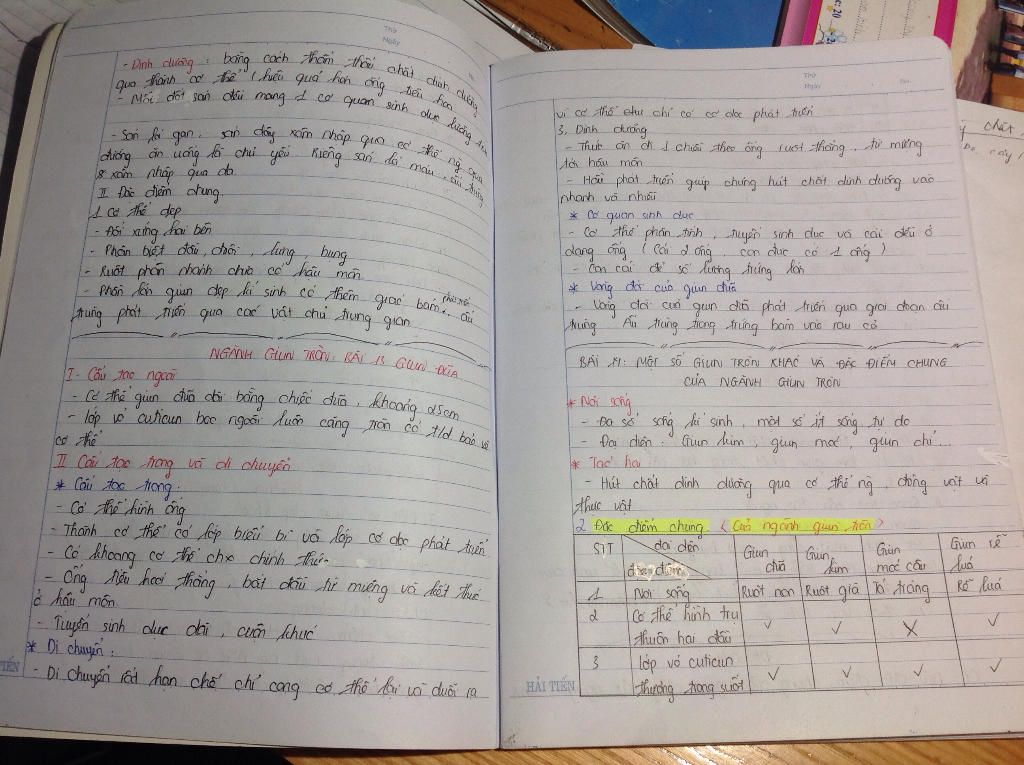 Thứ
Ngày
- Dinh dưỡng : bằng cách thẩm thấu chất dinh dưỡng
qua thành cơ thể ( hiệu quả hơn ống tiêu hóa
- Mỗi đốt sán đều mang 1 cơ quan sinh dục lưỡng tính
- Sán lá gan, sán dây xâm nhập qua cơ thể ng qua
đường ăn uống là chủ yếu. Riêng sán lá máu, ấu trùng
xâm nhập qua da
II Đặc điểm chung
1 cơ thể dẹp
- Đối xứng hai bên
- Phân biệt đầu, đuôi, lưng, bụng
- Ruột phân nhánh chưa có hậu môn
- Phần lớn giun dẹp kí sinh có thêm giác bám, ấu
trùng phát triển qua các vật chủ trung gian
NGÀNH GIUN TRÒN: BÀI 13 GIUN ĐŨA
I - Cấu tạo ngoài
- Cơ thể giun đũa dài bằng chiếc đũa, khoảng 25cm
- lớp vỏ cuticun bọc ngoài luôn căng tròn có t/d bảo vệ
cơ thể
II Cấu tạo trong và di chuyển
* Cấu tạo trong:
- Cơ thể hình ống
- Thành cơ thể có lớp biểu bì và lớp cơ dọc phát triển
- Có khoang cơ thể chưa chính thức
- Ống tiêu hoá thẳng, bắt đầu từ miệng và kết thúc
ở hậu môn
- Tuyến sinh dục dài, cuộn khúc
* Di chuyển:
- Di chuyển rất hạn chế chỉ cong cơ thể lại và duỗi ra
TIẾN
Thứ
Ngày
No.
vì cơ thể chỉ có cơ dọc phát triển
3. Dinh dưỡng
- Thức ăn đi 1 chiều theo ống ruột thẳng, từ miệng
tới hậu môn
- Hầu phát triển giúp chúng hút chất dinh dưỡng vào
nhanh và nhiều
* Cơ quan sinh dục
- Cơ thể phân tính, tuyến sinh dục và cái đều ở
dạng ống ( Cái 2 ống, con đực có 1 ống )
- Con cái đẻ số lượng trứng lớn
* Vòng đời của giun đũa
- Vòng đời của giun đũa phát triển qua giai đoạn ấu
trùng. Ấu trùng trong trứng bám vào rau cỏ
BÀI 14: MỘT SỐ GIUN TRÒN KHÁC VÀ ĐẶC ĐIỂM CHUNG
CỦA NGÀNH GIUN TRÒN
* Nơi sống
- Đa số sống kí sinh, một số ít sống tự do
- Đại diện: Giun kim, giun móc, giun chỉ...
* Tác hại
- Hút chất dinh dưỡng qua cơ thể ng, động vật và
thực vật
2 Đặc điểm chung ( Của ngành giun tròn )
STT đại diện Giun đũa Giun kim Giun móc câu Giun rễ lúa
đặc điểm
1 Nơi sống Ruột non Ruột già Tá tràng Rễ lúa
2 Cơ thể hình trụ thuôn hai đầu ✓ ✓ X ✓
3 lớp vỏ cuticun thường trong suốt ✓ ✓ ✓ ✓
HẢI TIẾN